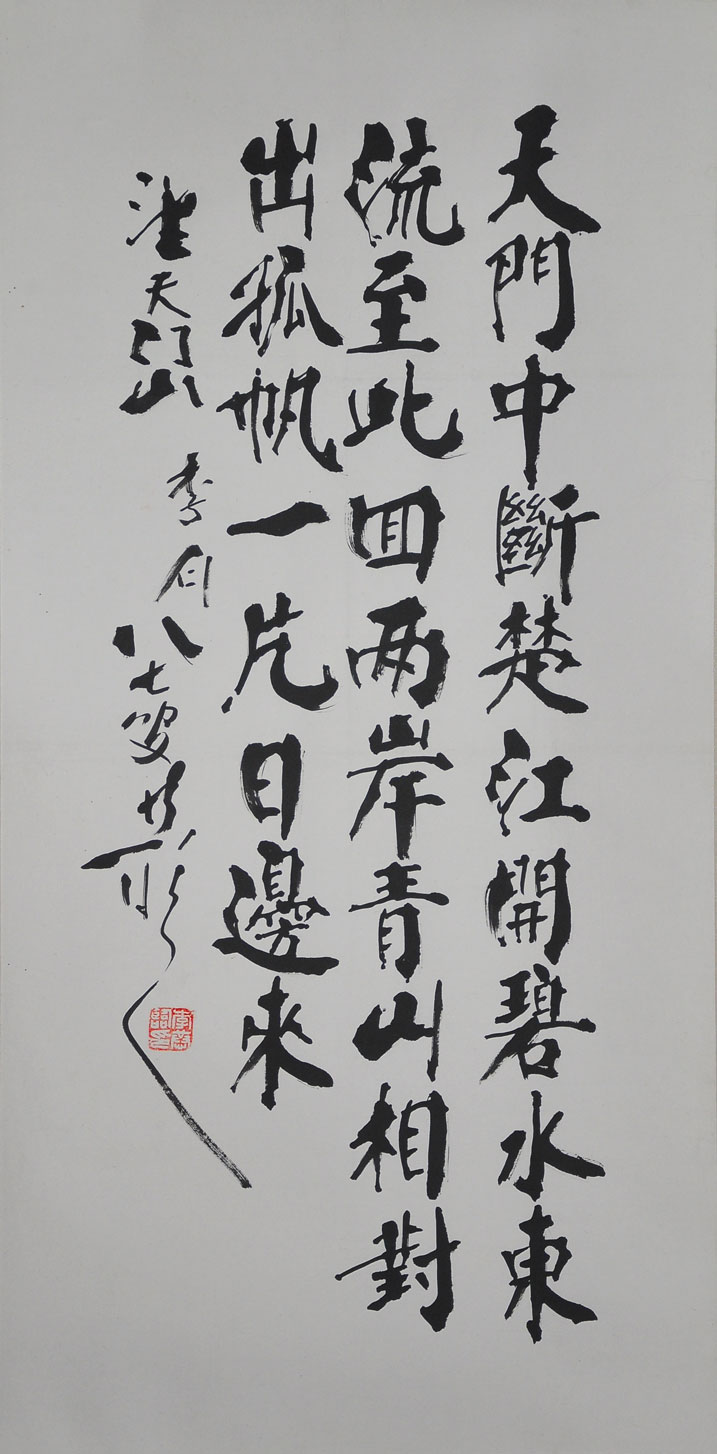 天門中斷楚江開碧水東
流至此囬两岸青山相對
出孤帆一片日邊來
望天门山
李白
八七叟